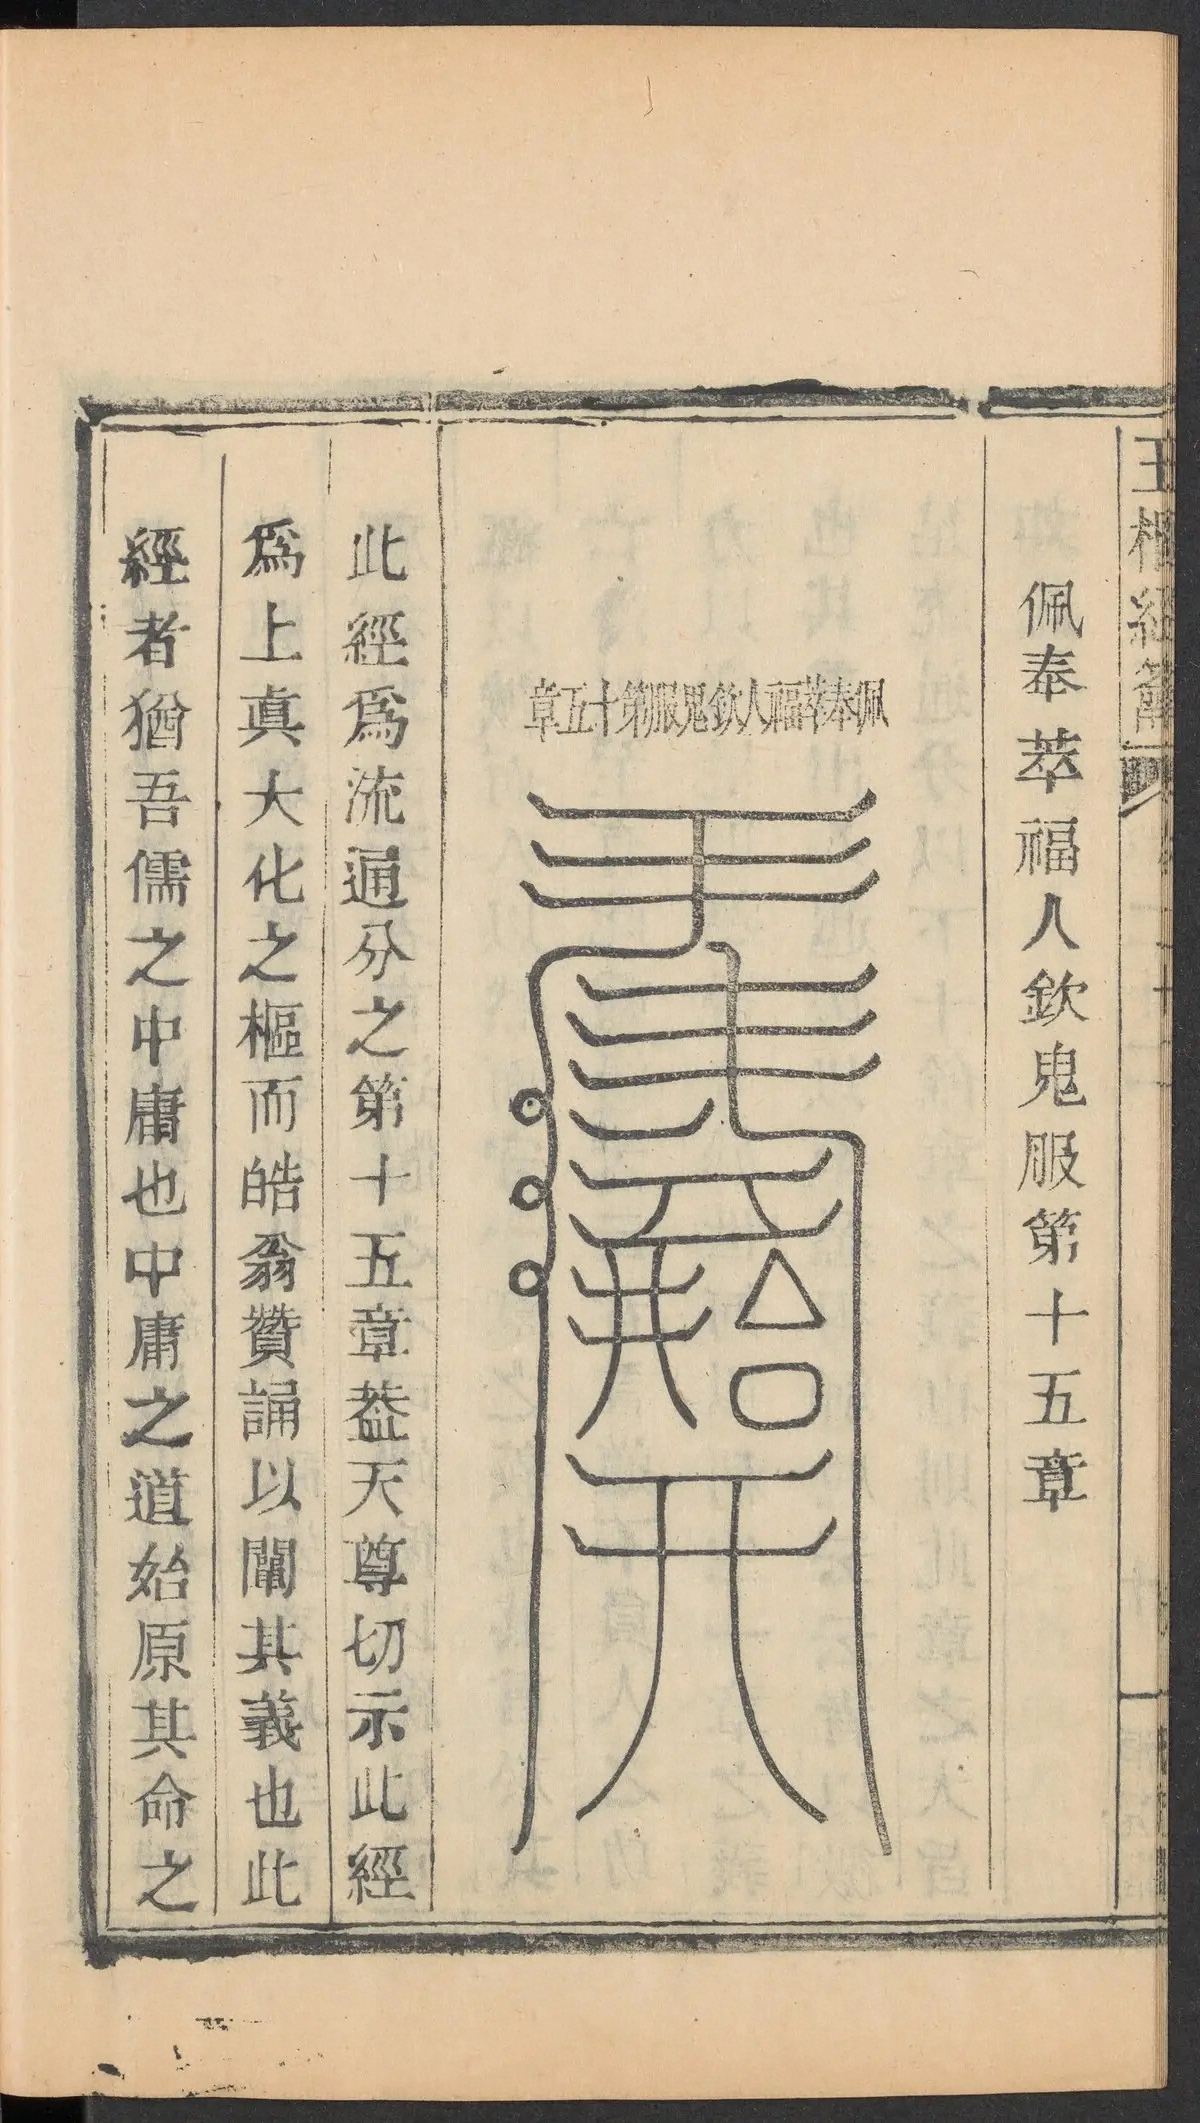 玉樞經籥
佩奉萃福人欽鬼服第十五章
佩奉萃福人欽鬼服第十五章
此經爲流通分之第十五章葢天尊切示此經
爲上眞大化之樞而皓翁贊誦以闡其義也此
經者猶吾儒之中庸也中庸之道始原其命之